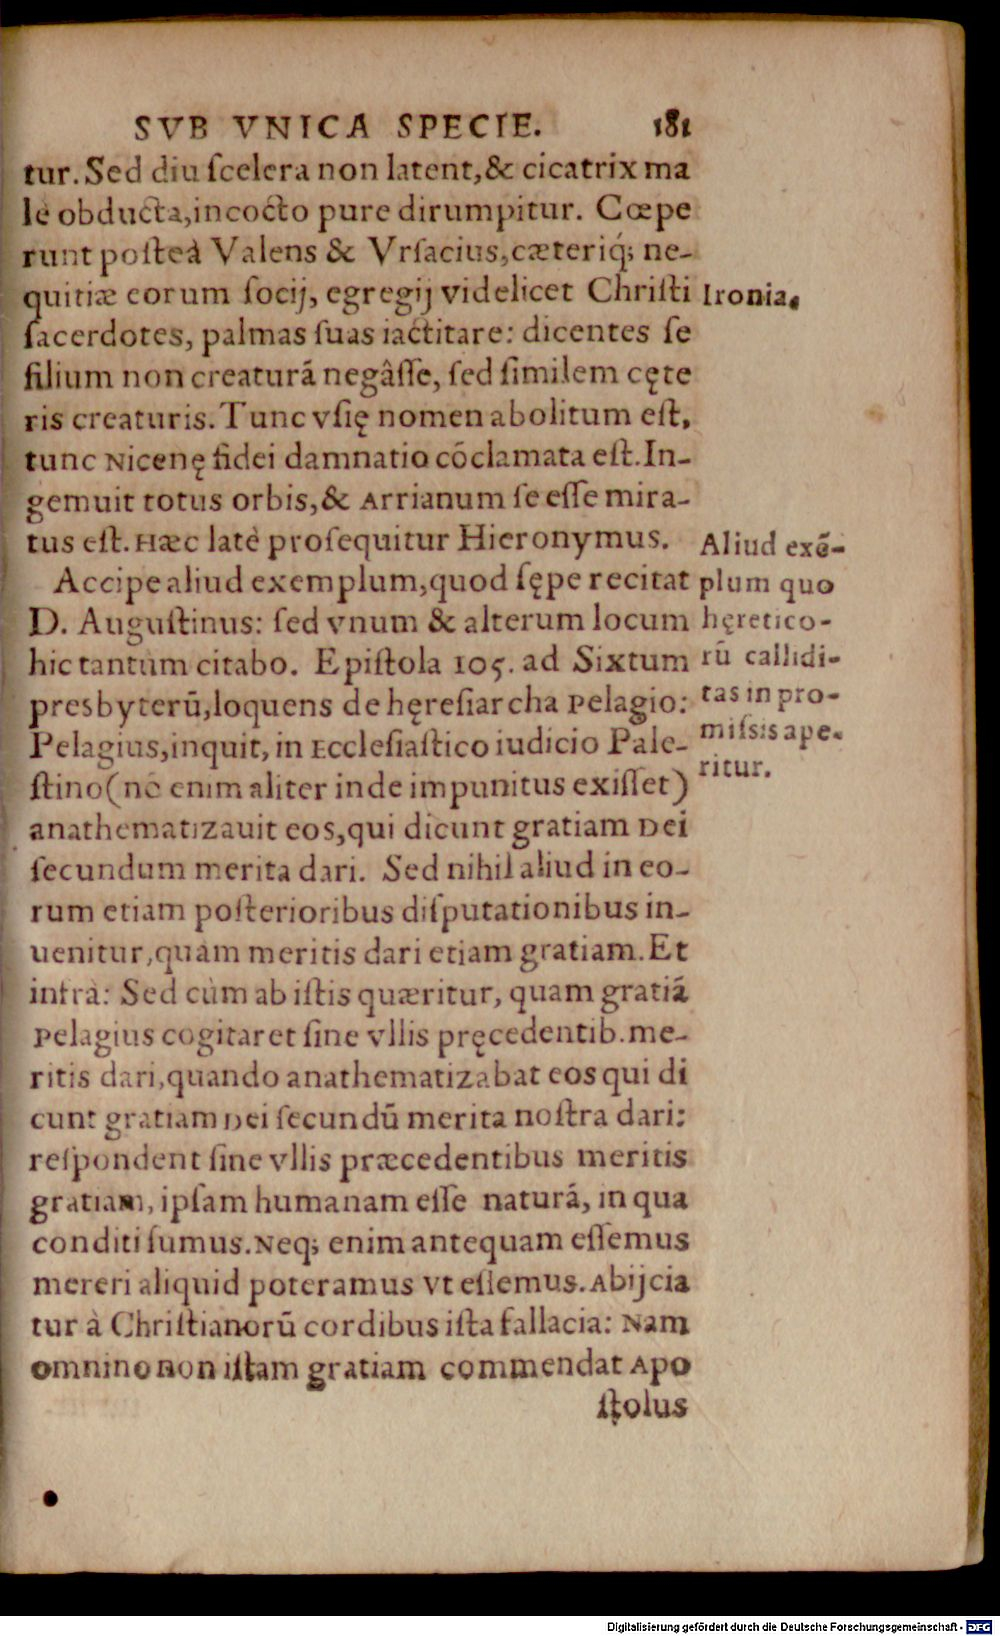 SVB VNICA SPECIE. 181
tur. Sed diu ſcelera non latent, & cicatrix ma
lè obducta, incocto pure dirumpitur. Cœpe
runt poſteà Valens & Vrſacius, cæteriq́; ne-
quitiæ eorum ſocij, egregij videlicet Chriſti
Ironia.
ſacerdotes, palmas ſuas iactitare: dicentes ſe
filium non creaturā negâſſe, ſed ſimilem cęte
ris creaturis. Tunc vſię nomen abolitum eſt,
tunc Nicenę fidei damnatio cōclamata eſt. In-
gemuit totus orbis, & Arrianum ſe eſſe mira-
tus eſt. Hæc latè proſequitur Hieronymus.
Accipe aliud exemplum, quod ſępe recitat
D. Auguſtinus: ſed vnum & alterum locum
hic tantùm citabo. Epiſtola 105. ad Sixtum
presbyterū, loquens de hęreſiarcha Pelagio:
Pelagius, inquit, in Eccleſiaſtico iudicio Pale-
ſtino (nec enim aliter inde impunitus exiſſet)
anathematizauit eos, qui dicunt gratiam Dei
ſecundum merita dari. Sed nihil aliud in eo-
rum etiam poſterioribus diſputationibus in-
uenitur, quàm meritis dari etiam gratiam. Et
infrà: Sed cùm ab iſtis quæritur, quam gratiā
Pelagius cogitaret ſine vllis pręcedentib. me-
ritis dari, quando anathematizabat eos qui di
cunt gratiam Dei ſecundū merita noſtra dari:
reſpondent ſine vllis præcedentibus meritis
gratiam, ipſam humanam eſſe naturā, in qua
conditi ſumus. Neq; enim antequam eſſemus
mereri aliquid poteramus vt eſſemus. Abijcia
tur à Chriſtianorū cordibus iſta fallacia: Nam
omnino non iſtam gratiam commendat Apo
ſtolus
Aliud exē-
plum quo
hęretico-
rū callidi-
tas in pro-
miſsis ape-
ritur.
Digitalisierung gefördert durch die Deutsche Forschungsgemeinschaft - DFG